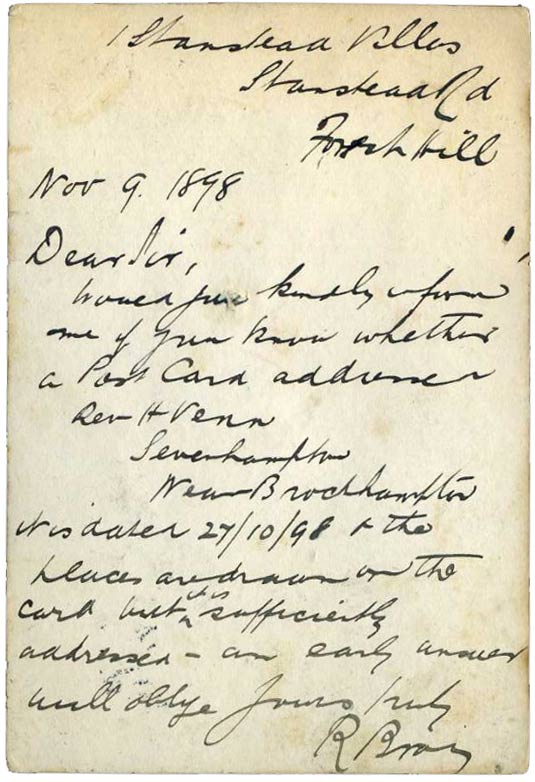 1 Stanstead Villas
Stanstead Rd
Forest Hill
Nov 9. 1898
Dear Sir,
Would you kindly inform
me if you know whether
a Post Card addressed
Rev H Venn
Sevenhampton
Near Brockhampton
It is dated 27/10/98 & the
places are drawn on the
card but it is sufficiently
addressed - an early answer
will oblige Yours truly
R Bray